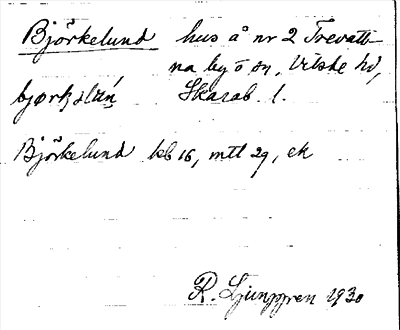 Björkelund hus å nr 2 Trevatt-
na by o sn, Vilske hd,
Skarab. l.
Björkelund kb 16, mtl 29, ek
R. Ljunggren 1930